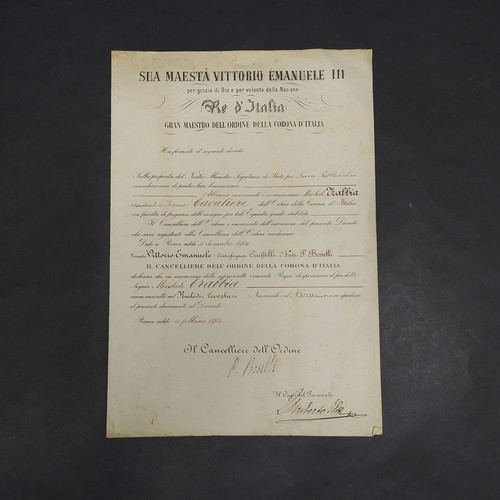 SUA MAESTÀ VITTORIO EMANUELE III
per grazia di Dio e per volontà della Nazione
Re d'Italia
GRAN MAESTRO DELL'ORDINE DELLA CORONA D'ITALIA
Ha firmato il seguente decreto:
Sulla proposta del Nostro Ministro Segretario di Stato pei Lavori Pubblici
considerazione di particolari benemerenze
Abbiamo nominato e nominiamo Trabbia
Cavaliere dell'Ordine della Corona d'Italia
con facoltà di fregiarsi delle insegne per tale Equestre grado stabilite.
Il Cancelliere dell'Ordine è incaricato dell'esecuzione del presente Decreto
che sarà registrato alla Cancelleria dell'Ordine medesimo.
Dato a Roma addì dicembre
Firmato Vittorio Emanuele Controfirmato Ciuffelli Visto P. Boselli
IL CANCELLIERE DELL'ORDINE DELLA CORONA D'ITALIA
dichiara che in esecuzione delle Regie disposizioni il predetto
Signor Trabbia
venne inscritto nel Ruolo dei Cavalieri Nazionali al N. e ne spedisce
il presente documento al Decorato.
Roma addì febbraio
Il Cancelliere dell'Ordine
P. Boselli
Il Capo del Personale